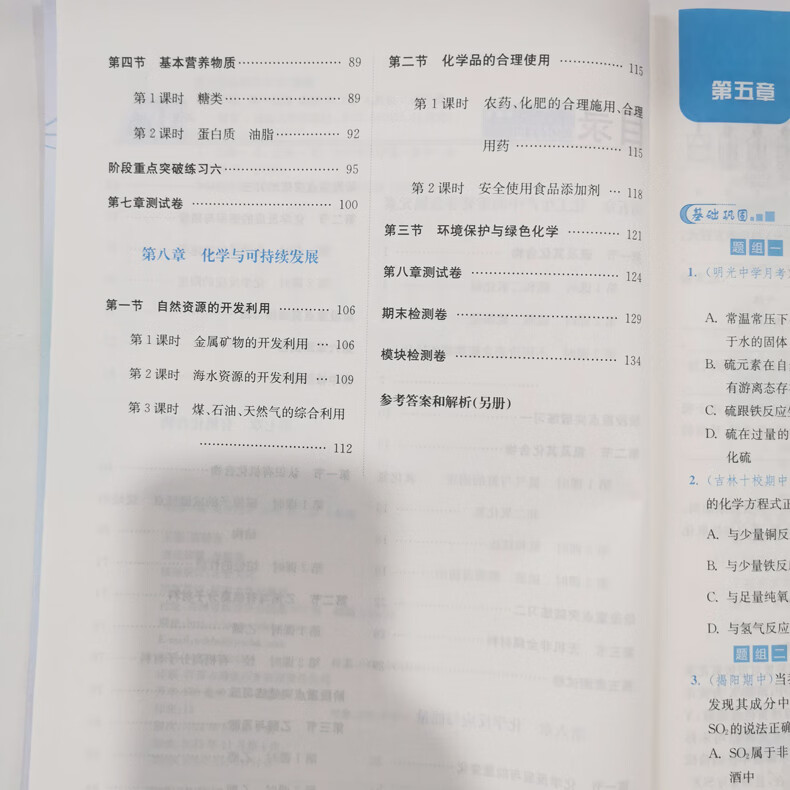 第四节 基本营养物质 …………………… 89
第1课时 糖类 …………………… 89
第2课时 蛋白质 油脂 …………… 92
阶段重点突破练习六 …………………… 95
第七章测试卷 …………………… 100
第八章 化学与可持续发展
第一节 自然资源的开发利用 ………… 106
第1课时 金属矿物的开发利用 … 106
第2课时 海水资源的开发利用 … 109
第3课时 煤、石油、天然气的综合利用
…………………… 112
第二节 化学品的合理使用 ………… 115
第1课时 农药、化肥的合理施用、合理
用药 …………………… 115
第2课时 安全使用食品添加剂 … 118
第三节 环境保护与绿色化学 ………… 121
第八章测试卷 …………………… 124
期末检测卷 …………………… 129
模块检测卷 …………………… 134
参考答案和解析(另册)
第五章
基础巩固
题组一
1. (明光中学月考
A. 常温常压下
于水的固体
B. 硫元素在自
有游离态存
C. 硫跟铁反应
D. 硫在过量的
化硫
2. (吉林十校期中
的化学方程式正
A. 与少量铜反
B. 与少量铁反
C. 与足量纯氧
D. 与氢气反应
题组二
3. (揭阳期中)当
发现其成分中
SO₂的说法正确
A. SO₂属于非
酒中